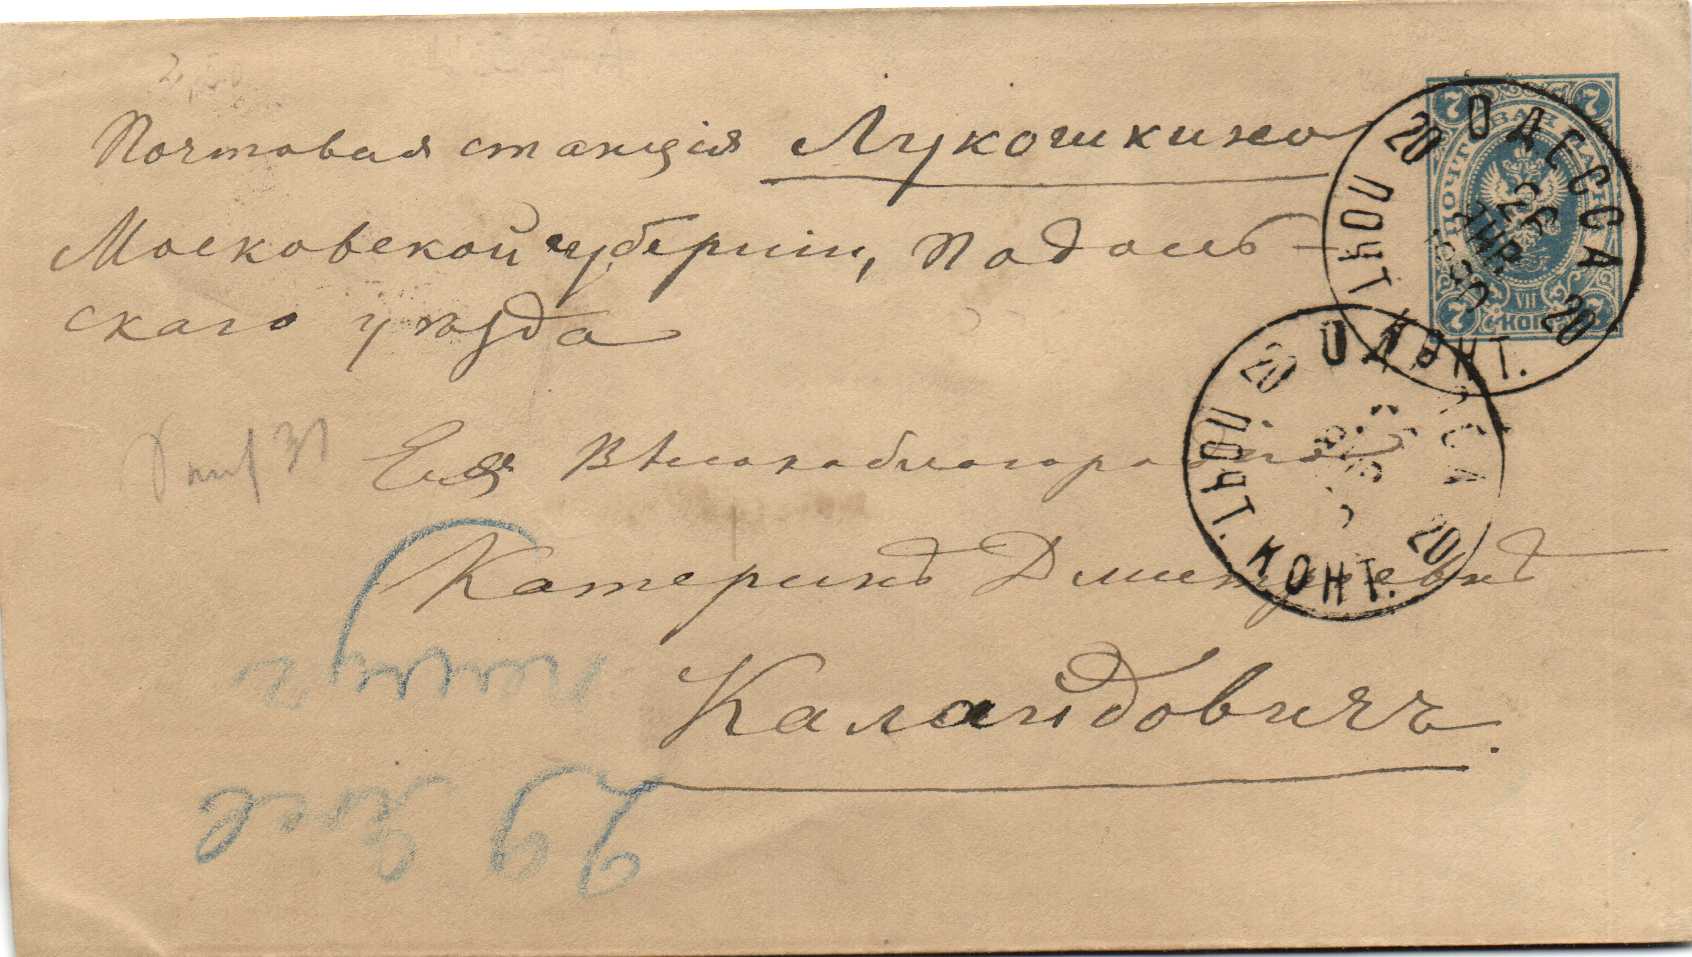 Почтовая станція Лукошкино
Московской губерніи, Подоль-
скаго уѣзда
Ея Высокоблагородію
Катеринѣ Дмитріевнѣ
Каландовичъ.
7 7
ПОЧТОВАЯ МАРКА
VII
7 КОП. 7
20 ОДЕССА 20
26
ЯНВ.
1890
ПОЧТ. КОНТ.
20 ОДЕССА 20
ПОЧТ. КОНТ.
31
29